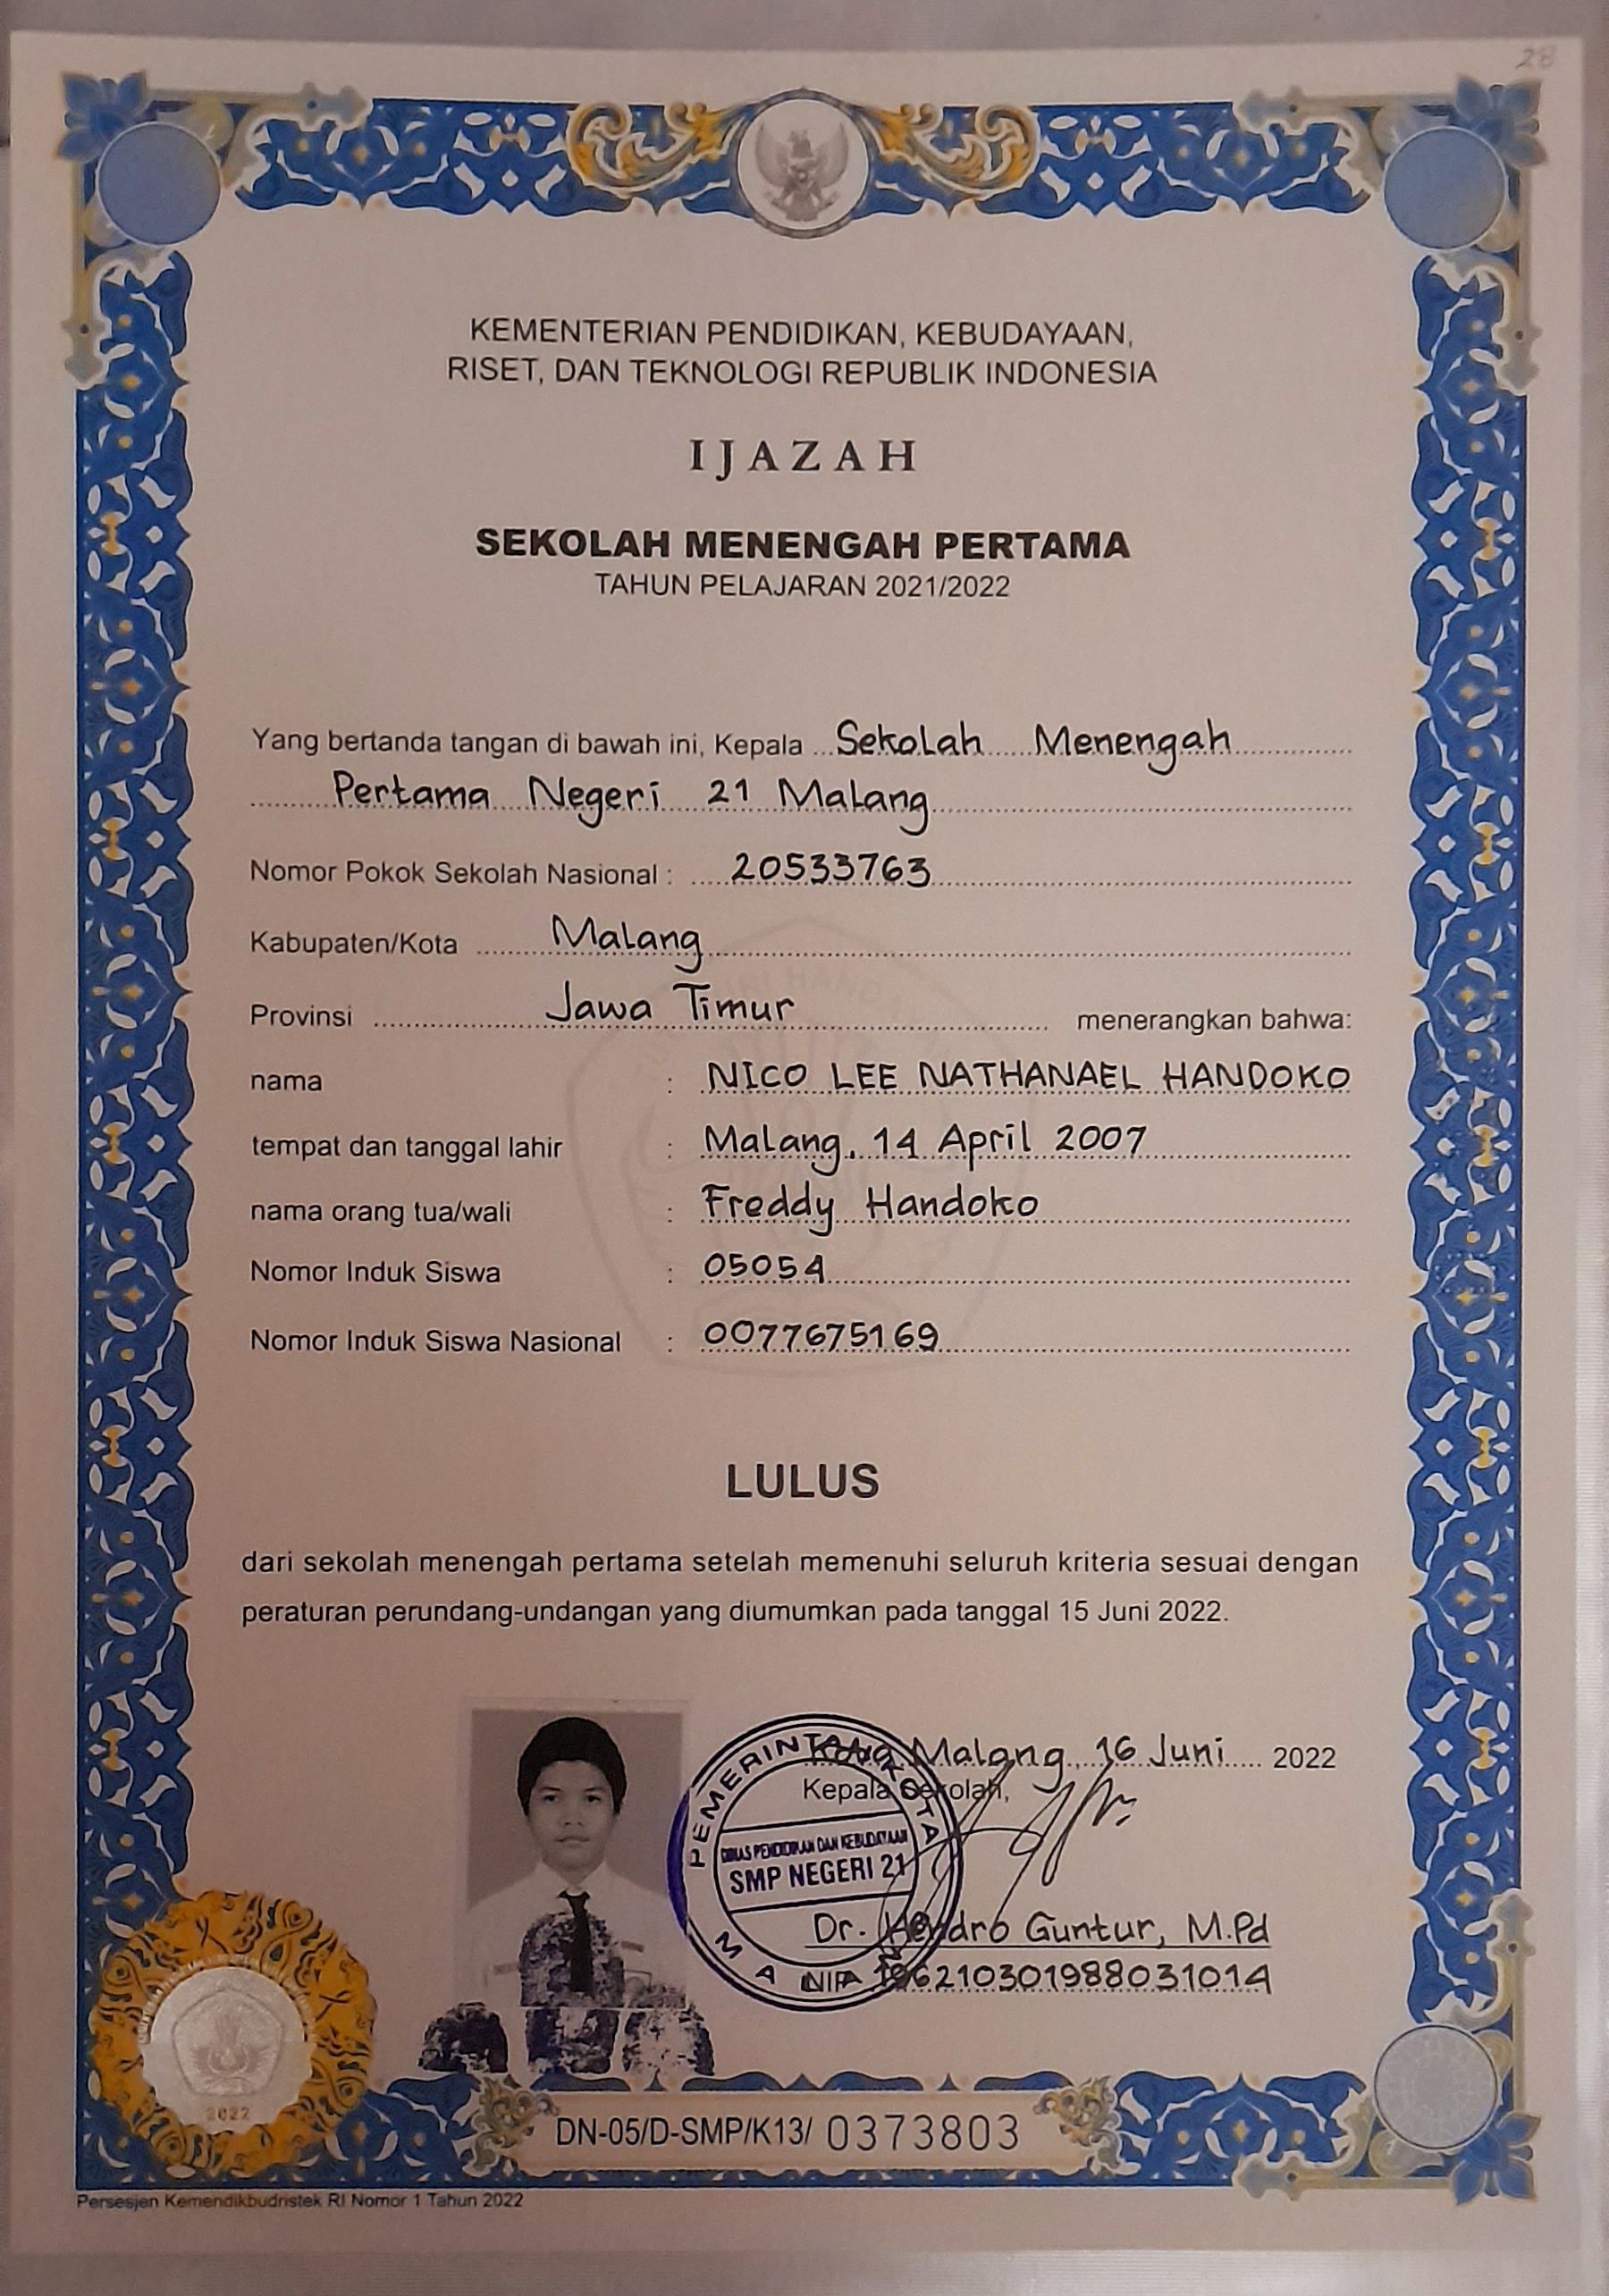 28
KEMENTERIAN PENDIDIKAN, KEBUDAYAAN,
RISET, DAN TEKNOLOGI REPUBLIK INDONESIA
IJAZAH
SEKOLAH MENENGAH PERTAMA
TAHUN PELAJARAN 2021/2022
Yang bertanda tangan di bawah ini, Kepala Sekolah Menengah
Pertama Negeri 21 Malang
Nomor Pokok Sekolah Nasional : 20533763
Kabupaten/Kota Malang
Provinsi Jawa Timur menerangkan bahwa:
nama : NICO LEE NATHANAEL HANDOKO
tempat dan tanggal lahir : Malang, 14 April 2007
nama orang tua/wali : Freddy Handoko
Nomor Induk Siswa : 05054
Nomor Induk Siswa Nasional : 0077675169
LULUS
dari sekolah menengah pertama setelah memenuhi seluruh kriteria sesuai dengan
peraturan perundang-undangan yang diumumkan pada tanggal 15 Juni 2022.
Kota Malang, 16 Juni 2022
Kepala Sekolah,
PEMERINTAH KOTA
DINAS PENDIDIKAN DAN KEBUDAYAAN
SMP NEGERI 21
MALANG
Dr. Hendro Guntur, M.Pd
NIP 196210301988031014
2022
DN-05/D-SMP/K13/ 0373803
Persesjen Kemendikbudristek RI Nomor 1 Tahun 2022